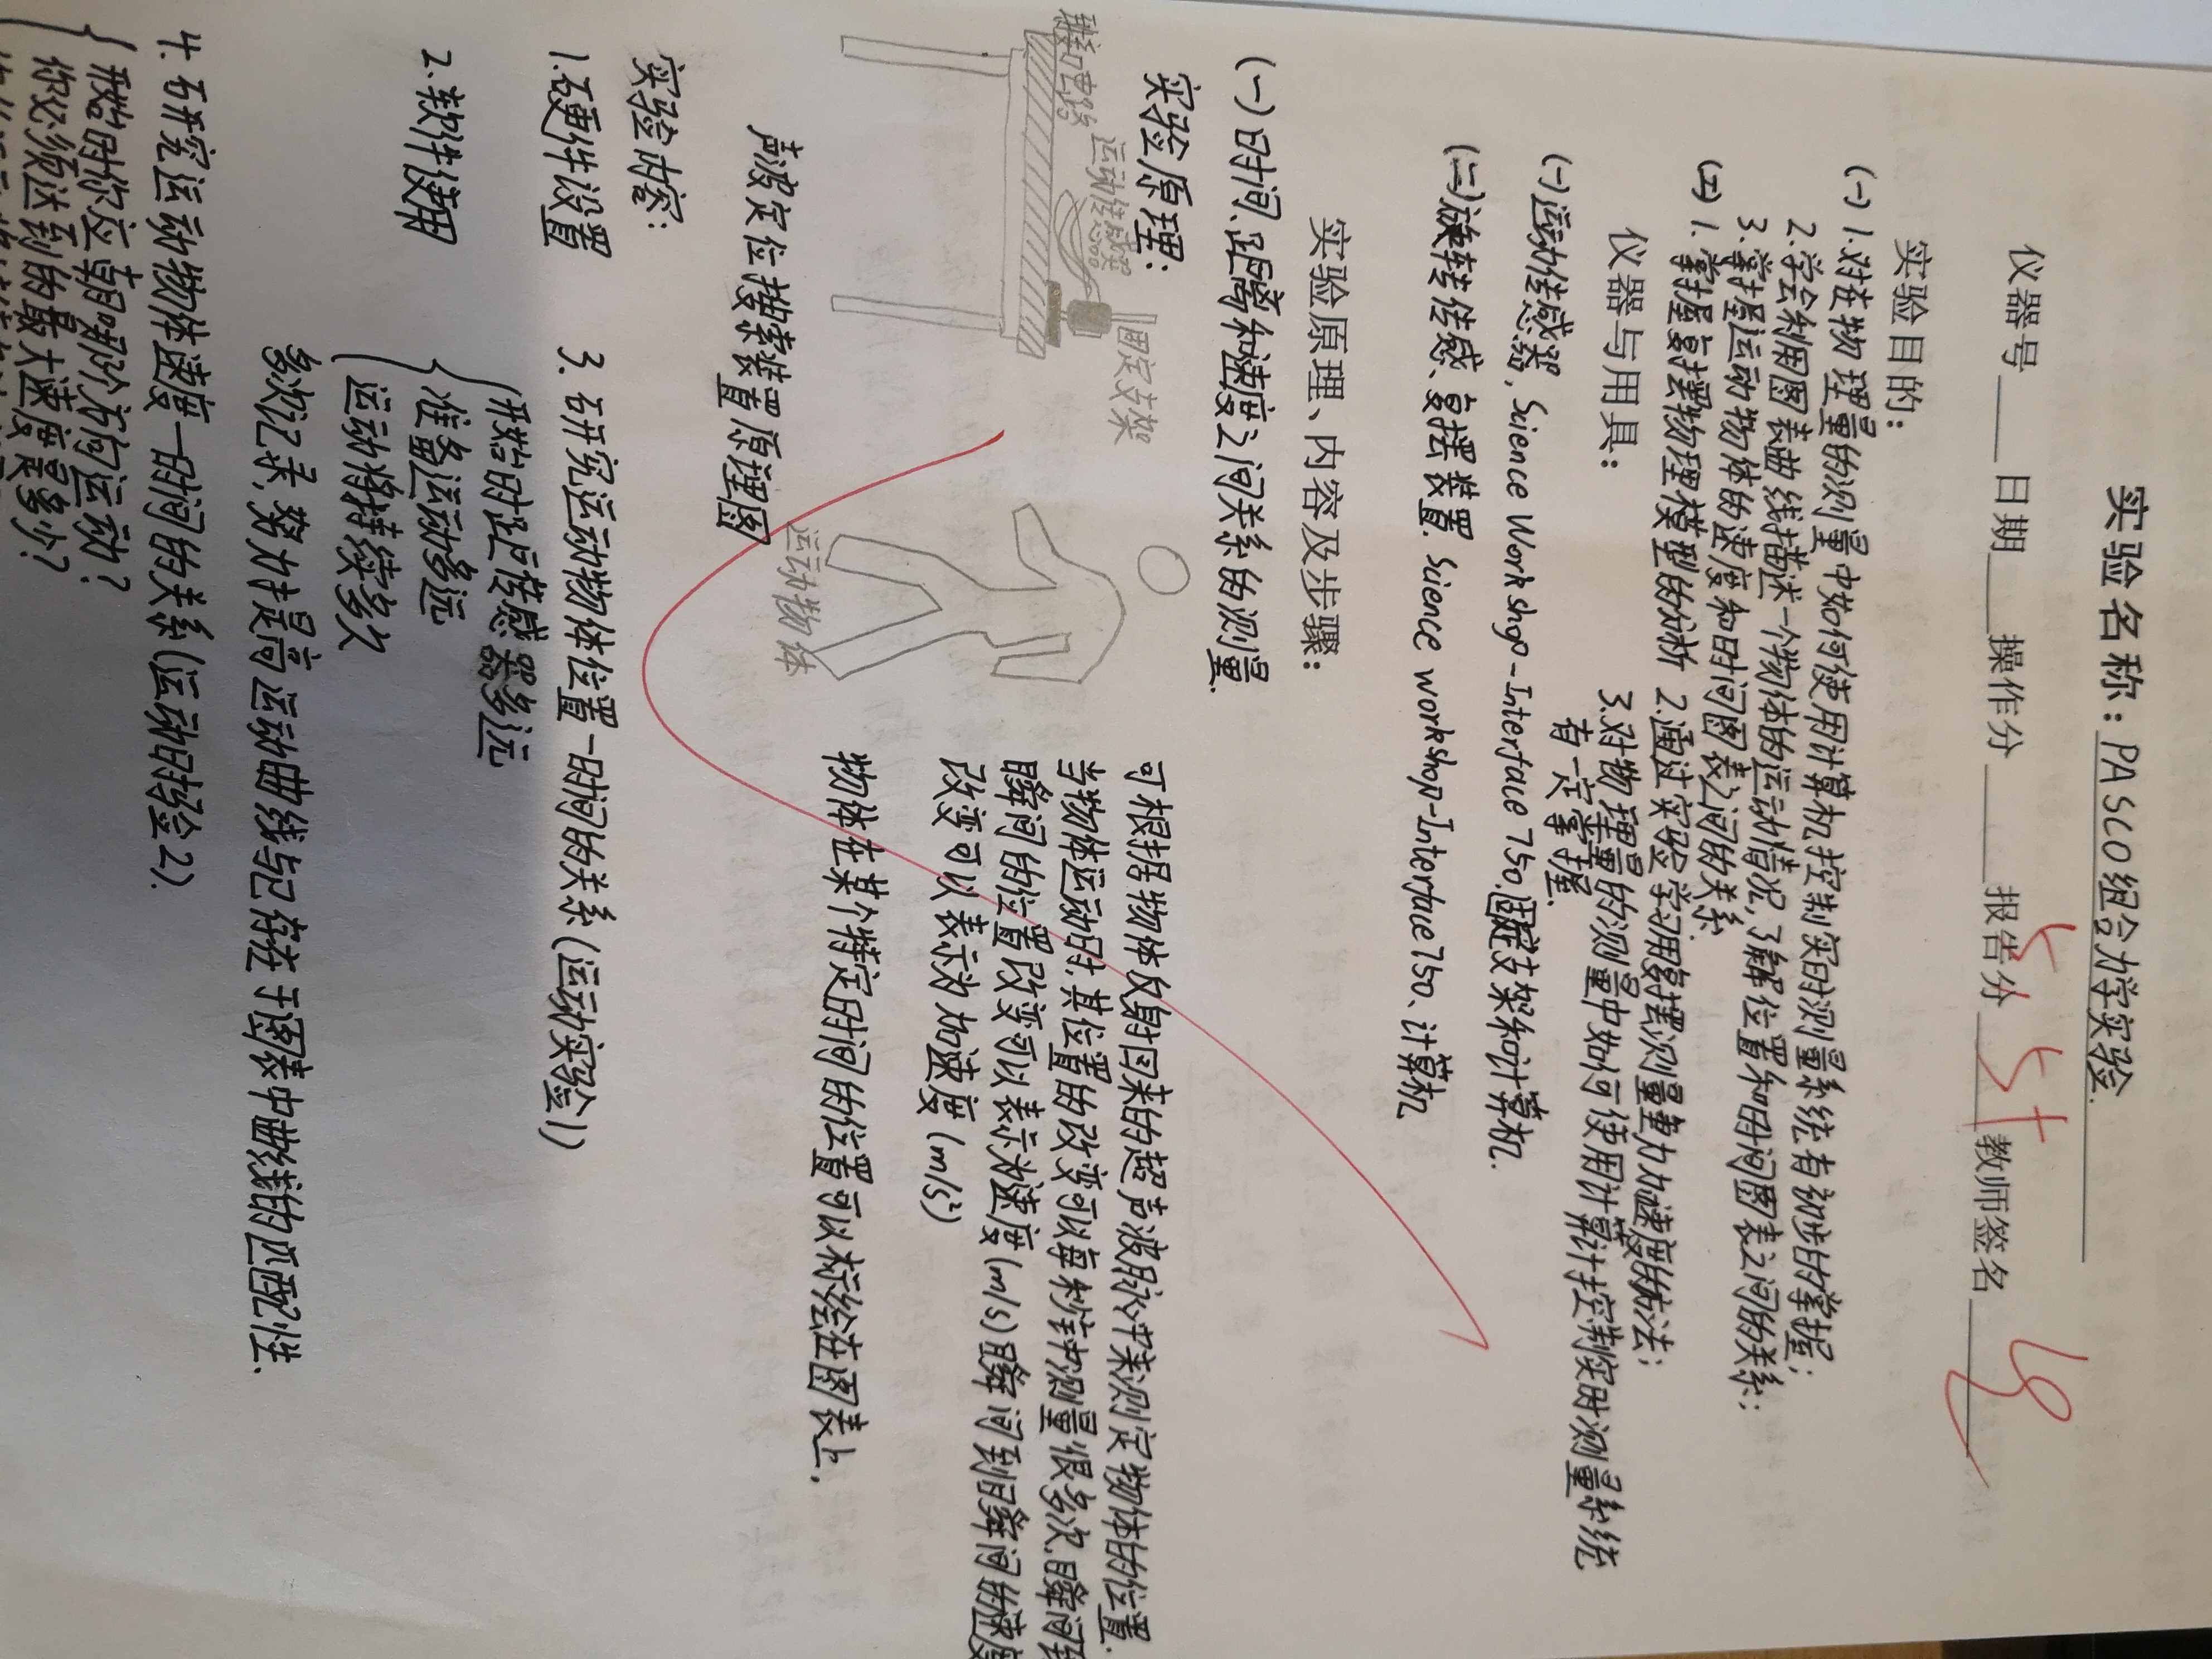 实验名称：PASCO组合力学实验.
仪器号 日期 操作分 报告分 5 5+ 教师签名
实验目的：
(一) 1.对在物理量的测量中如何使用计算机控制实时测量系统有初步的掌握；
2.学会利用图表曲线描述一个物体的运动情况，了解位置和时间图表之间的关系；
3.掌握运动物体的速度和时间图表之间的关系
(二) 1.掌握复摆物理模型的分析 2.通过实验学习用复摆测量重力加速度的方法；
3.对物理量的测量中如何使用计算计控制实时测量系统
有一定掌握.
仪器与用具：
(一)运动传感器, Science Workshop-Interface 750, 固定支架和计算机.
(二)旋转传感、复摆装置. Science workshop-Interface 750、计算机
实验原理、内容及步骤：
(一)时间、距离和速度之间关系的测量.
实验原理：
接口电路
运动传感器
固定支架
运动物体
声波定位搜索装置原理图
可根据物体反射回来的超声波脉冲来测定物体的位置.
当物体运动时.其位置的改变可以每秒钟测量很多次.瞬间到
瞬间的位置改变可以表示为速度(m/s)瞬间到瞬间的速度
改变可以表示为加速度(m/s²)
物体在某个特定时间的位置可以标绘在图表上.
实验内容：
1.硬件设置
2.软件使用
3.研究运动物体位置-时间的关系(运动实验1)
开始时距传感器多远
准备运动多远
运动将持续多久
多次记录,努力提高运动曲线与已存在于图表中曲线的匹配性.
4.研究运动物体速度-时间的关系(运动时验2).
开始时你应朝哪个方向运动?
你必须达到的最大速度是多少?